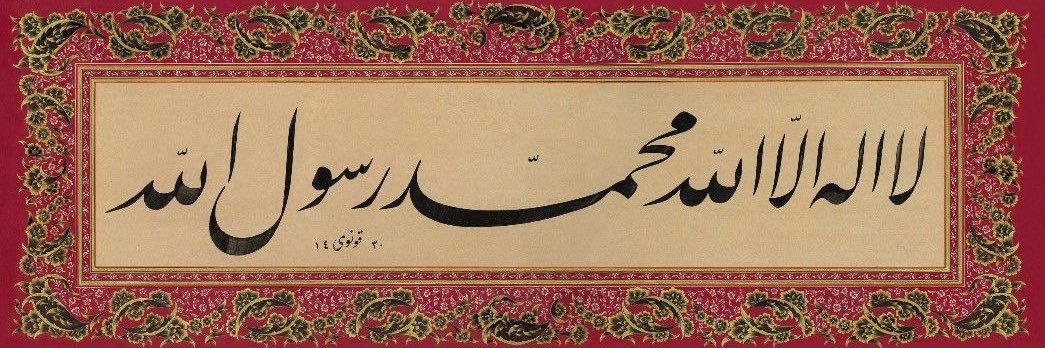 لا اله الّا اللّٰه محمّد رسول اللّٰه
٣٠ قونوى ١٤